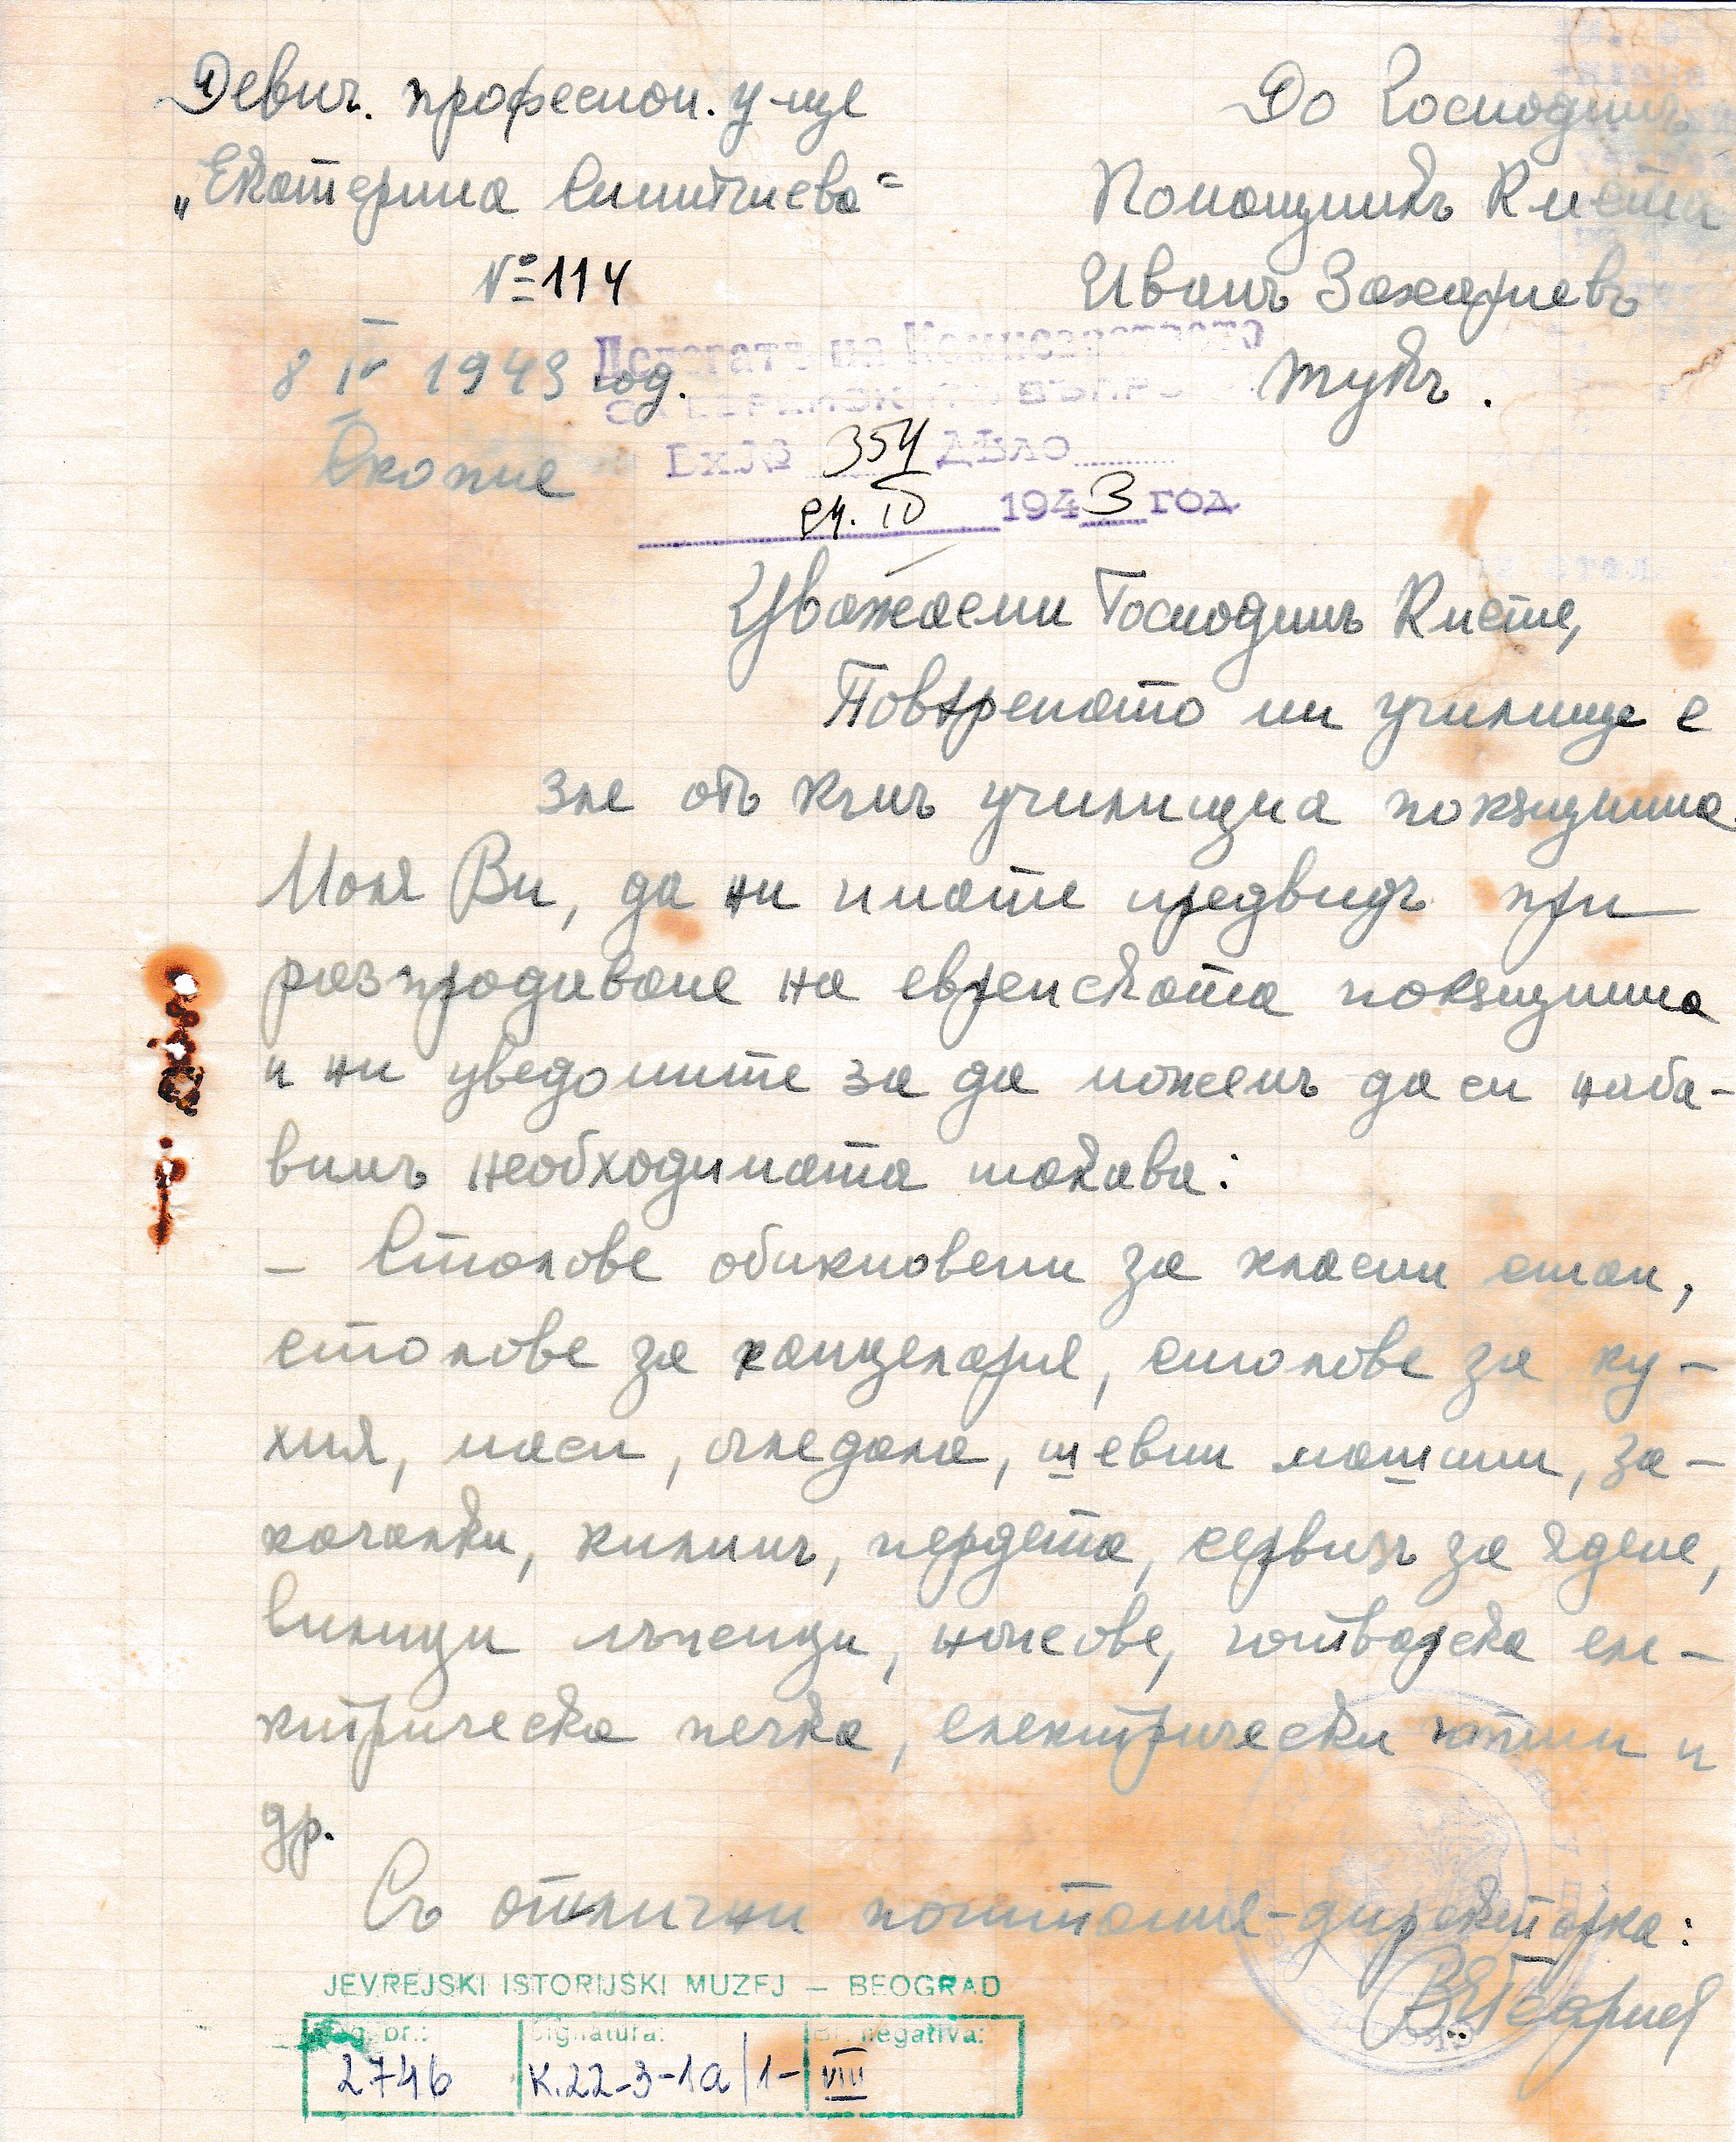 Девич. професион. у-ще
„Екатерина Симитчиева“
№ 114
8 IV 1943 год.
Скопие
До Господинъ
Помощникъ Кмета
Иванъ Захариевъ
тукъ.
Делегатъ на Комисарството
за еврейскитѣ въпроси
Вх.№ 354 ДѢЛО
24. IV 1943 ГОД
Уважаеми Господинъ Кмете,
Повѣреното ми училище е
зле откъмъ училищна покѫщнина.
Моля Ви, да ни имате предвидъ при
разпродаване на еврейската покѫщнина
и ни уведомите за да можемъ да си наба-
вимъ необходимата такава:
– Столове обикновени за класни стаи,
столове за канцелария, столове за ку-
хня, маси, огледала, шевни машини, за-
качалки, килимъ, пердета, сервизъ за ядене,
вилици лъжици, ножове, готварска еле-
ктрическа печка, електрически ютии и
др.
Съ отлични почитания-директорка:
JEVREJSKI ISTORIJSKI MUZEJ – BEOGRAD
Reg. br.: Signatura: Br. negativa:
2746 K.22-3-1a/1- VIII